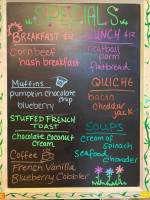 SPECIALS
BREAKFAST $12
Corn beef
hash breakfast
Muffins
pumpkin chocolate
chip
blueberry
STUFFED FRENCH
TOAST
Chocolate coconut
cream
Coffee
French Vanilla
Blueberry Cobbler
LUNCH $12
meatball
parm
flatbread
QUICHE
bacon
cheddar
jack
SOUPS
cream of
spinach
seafood
chowder